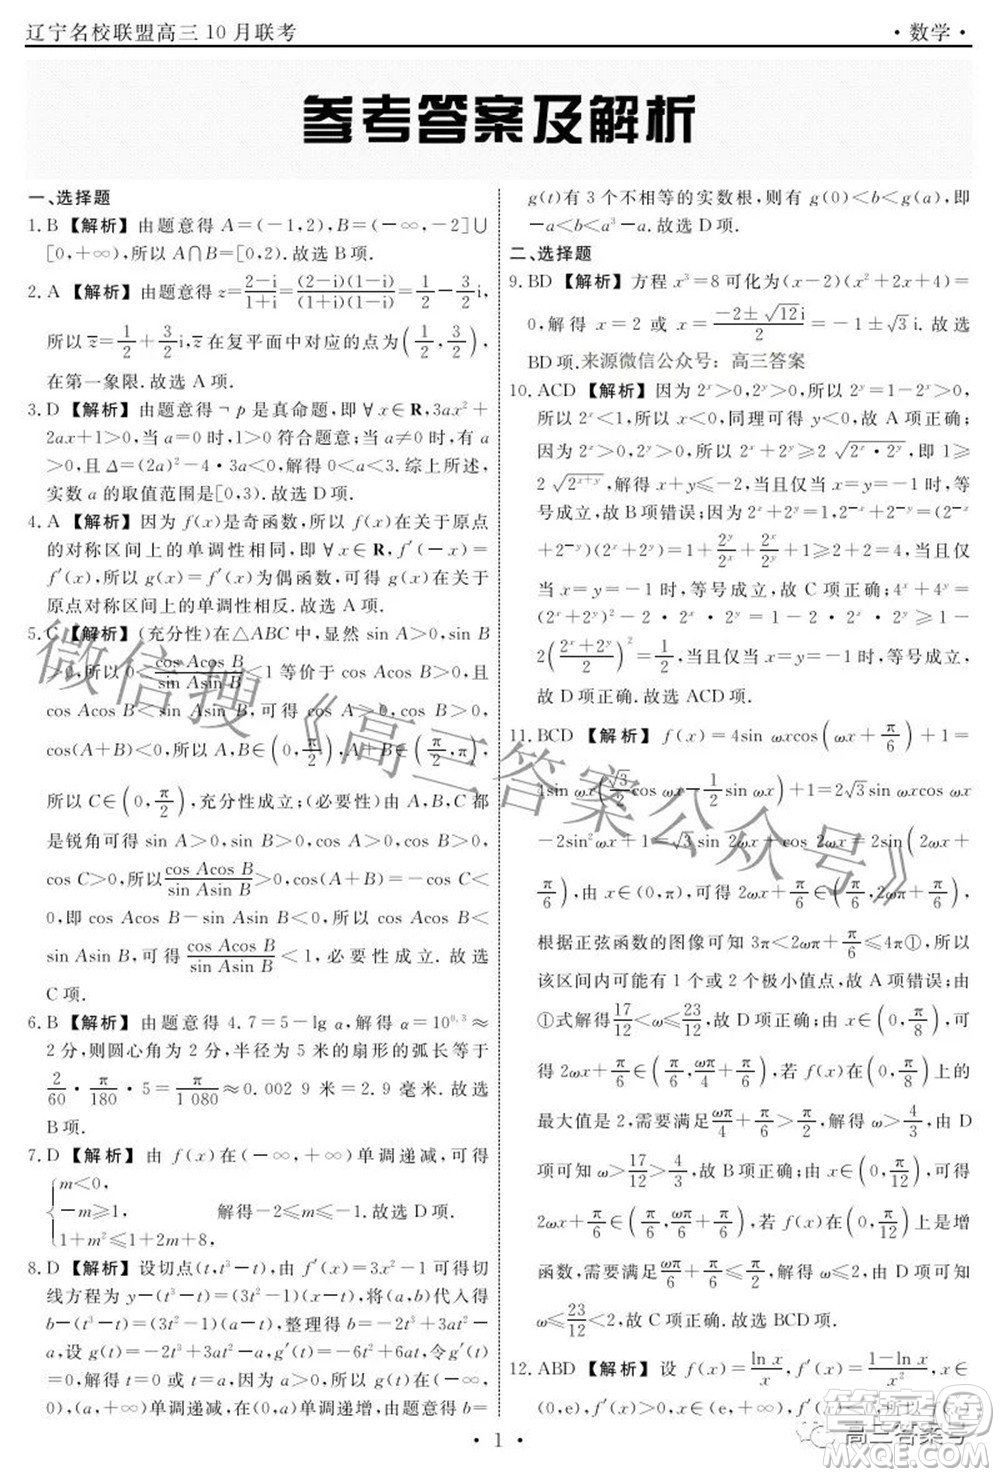 辽宁名校联盟高三10月联考
·数学·
参考答案及解析
一、选择题
1.B 【解析】由题意得 A=(-1,2),B=(-∞,-2]∪
[0,+∞),所以 A∩B=[0,2). 故选 B 项.
2.A 【解析】由题意得 z=\frac{2-i}{1+i}=\frac{(2-i)(1-i)}{(1+i)(1-i)}=\frac{1}{2}-\frac{3}{2}i,
所以 \overline{z}=\frac{1}{2}+\frac{3}{2}i,\overline{z} 在复平面中对应的点为(\frac{1}{2},\frac{3}{2}),
在第一象限. 故选 A 项.
3.D 【解析】由题意得 ¬p 是真命题,即 ∀x∈R,3ax²+
2ax+1>0,当 a=0 时,1>0 符合题意;当 a≠0 时,有 a
>0,且 Δ=(2a)²-4·3a<0,解得 0<a<3. 综上所述,
实数 a 的取值范围是[0,3). 故选 D 项.
4.A 【解析】因为 f(x)是奇函数,所以 f(x)在关于原点
的对称区间上的单调性相同,即 ∀x∈R,f′(-x)=
f′(x),所以 g(x)=f′(x)为偶函数,所以 g(x)在关于
原点对称区间上的单调性相反. 故选 A 项.
5.C 【解析】(充分性)在△ABC 中,显然 sin A>0,sin B
>0,所以 0<\frac{cos Acos B}{sin Asin B}<1 等价于 0<
cos Acos B<sin Asin B,可得 cos A>0,cos B>0,
cos(A+B)<0,则 A,B∈(0,\frac{π}{2}),A+B∈(\frac{π}{2},π),
所以 C∈(0,\frac{π}{2}),充分性成立;(必要性)由 A,B,C 都
是锐角可得 sin A>0,sin B>0,cos A>0,cos B>0,
cos C>0,则\frac{cos Acos B}{sin Asin B}>0,cos(A+B)=-cos C<
0,即 cos Acos B-sin Asin B<0,所以 cos Acos B<
sin Asin B,可得\frac{cos Acos B}{sin Asin B}<1,必要性成立. 故选
C 项.
6.B 【解析】由题意得 4.7=5-lg α,解得 α=10^{0.3}≈
2 分,则圆心角为 2 分,半径为 5 米的扇形的弧长等于
\frac{2}{60}·\frac{π}{180}·5=\frac{π}{1 080}≈0.002 9 米=2.9 毫米. 故选
B 项.
7.D 【解析】由 f(x)在(-∞,+∞)单调递减,可得
{m<0,
-m≥1, 解得-2≤m≤-1. 故选 D 项.
1+m≥2m+m²,
8.D 【解析】设切点(t,t³-t),由 f′(x)=3x²-1 可得切
线方程为 y-(t³-t)=(3t²-1)(x-t),将(a,b)代入得
b-(t³-t)=(3t²-1)(a-t),整理得 b=-2t³+3at²
-a,设 g(t)=-2t³+3at²-a,g′(t)=-6t²+6at,令g′(t)
=0,解得 t=0 或 t=a,由 a>0 可得 g(t)在(-∞,
0),(a,+∞)单调递减,在(0,a)单调递增,由于 b=
g(t)有 3 个不相等的实数根,则有 g(0)<b<g(a),即
-a<b<a³-a. 故选 D 项.
二、选择题
9.BD 【解析】方程 x³=8 可化为(x-2)(x²+2x+4)=
0,解得 x=2 或 x=\frac{-2±\sqrt{12}i}{2}=-1±\sqrt{3}i. 故选
BD 项. 来源微信公众号:高三答案
10.ACD 【解析】因为 2^x>0,2^y>0,所以 2^y=1-2^x>0,
所以 2^x<1,所以 x<0,同理可得 y<0,故 A 项正确;
因为 2^x>0,2^y>0,所以 2^x+2^y≥2\sqrt{2^x·2^y},即 1≥
2\sqrt{2^{x+y}},解得 x+y≤-2,当且仅当 x=y=-1 时,等
号成立,故 B 项错误;2^{-x}+2^{-y}=1×(2^{-x}+2^{-y})=(2^x+
2^y)(2^{-x}+2^{-y})=1+\frac{2^x}{2^y}+\frac{2^y}{2^x}+1≥2+2=4,当且仅
当 x=y=-1 时,等号成立,故 C 项正确;4^x+4^y=
(2^x+2^y)²-2·2^x·2^y=1-2·2^x·2^y≥1-
2(\frac{2^x+2^y}{2})²=\frac{1}{2},当且仅当 x=y=-1 时,等号成立,
故 D 项正确. 故选 ACD 项.
11.BCD 【解析】f(x)=4sin ωxcos(ωx+\frac{π}{6})+1=
4sin ωx(\frac{\sqrt{3}}{2}cos ωx-\frac{1}{2}sin ωx)+1=2\sqrt{3}sin ωxcos ωx
-2sin²ωx+1=\sqrt{3}sin 2ωx+cos 2ωx=2sin(2ωx+
\frac{π}{6}),由 x∈(0,π),可得 2ωx+\frac{π}{6}∈(\frac{π}{6},2ωπ+\frac{π}{6}),
根据正弦函数的图像可知 3π<2ωπ+\frac{π}{6}≤4π①,所以
该区间内可能有 1 个或 2 个极小值点,故 A 项错误;由
①式解得\frac{17}{12}<ω≤\frac{23}{12},故 B 项正确;由 x∈(0,\frac{π}{8}),可
得 2ωx+\frac{π}{6}∈(\frac{π}{6},\frac{ωπ}{4}+\frac{π}{6}),若 f(x)在(0,\frac{π}{8})上的
最大值是 2,需要满足\frac{ωπ}{4}+\frac{π}{6}>\frac{π}{2},解得 ω>\frac{4}{3},由 B
项可知 ω>\frac{17}{12}>\frac{4}{3},故 C 项正确;由 x∈(0,\frac{π}{12})可得
2ωx+\frac{π}{6}∈(\frac{π}{6},\frac{ωπ}{6}+\frac{π}{6}),若 f(x)在(0,\frac{π}{12})上是增
函数,需满足\frac{ωπ}{6}+\frac{π}{6}≤\frac{π}{2},解得 ω≤2,由 B 项可知
ω≤\frac{23}{12}<2,故 D 项正确. 故选 BCD 项.
12.ABD 【解析】设 f(x)=\frac{ln x}{x},f′(x)=\frac{1-ln x}{x²},x∈
·1·
微信搜《高三答案公众号》
高三答案号